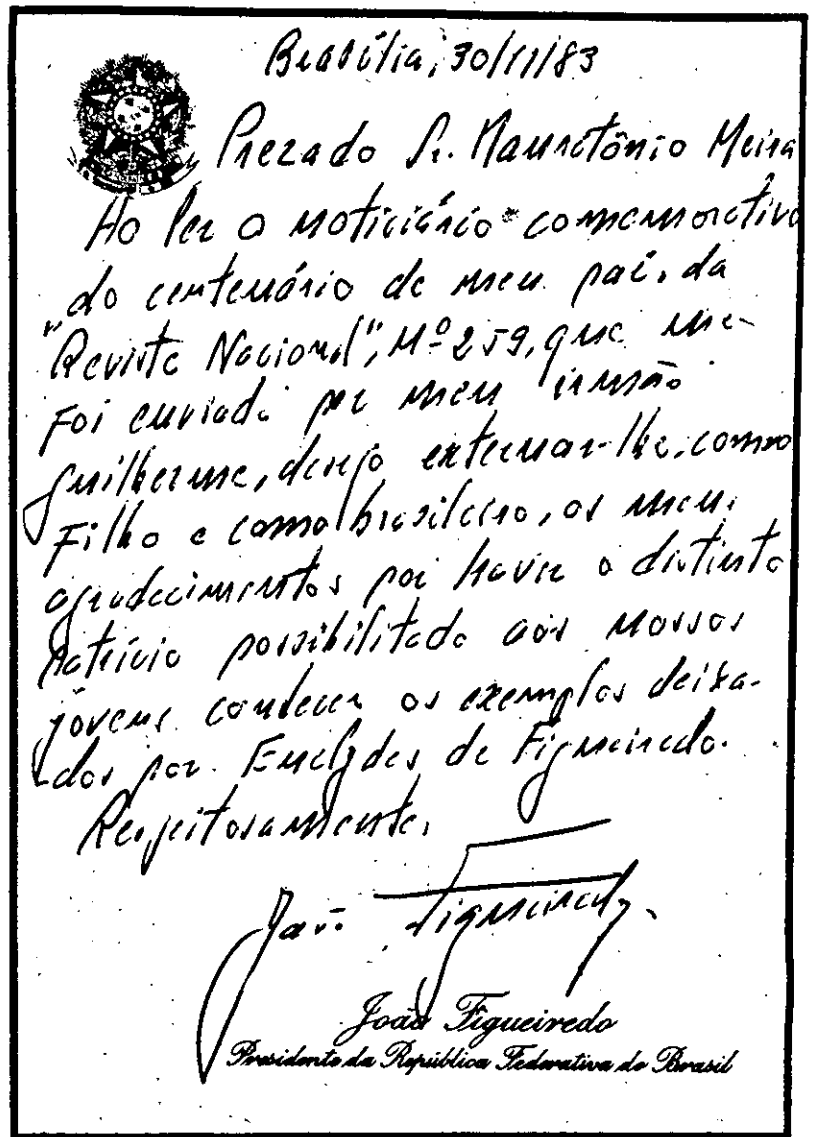 Brasília, 30/11/83
Prezado Sr. Mauritônio Meira
Ao ler o noticiário comemorativo
do centenário de meu pai, da
"Revista Nacional", Nº 259, que me
foi enviada por meu irmão
Guilherme, desejo externar-lhe, como
Filho e como brasileiro, os meus
agradecimentos por haver o distinto
patrício possibilitado aos nossos
jovens conhecer os exemplos deixa-
dos por Euclydes de Figueiredo.
Respeitosamente,
João Figueiredo
João Figueiredo
Presidente da República Federativa do Brasil